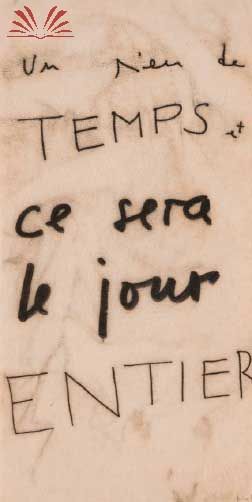 Un rien de
TEMPS et
ce sera
le jour
ENTIER